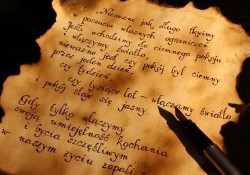 Nieważne jak długo tkwimy
poczuciu własnych ograniczeń
Jeśli wchodzimy do ciemnego pokoju
i włączymy światło,
nieważne jest czy pokój był ciemny
przez jeden dzień
czy tydzień,
czy tysiące lat - włączamy światło
i pokój staje się jasny.
Gdy tylko włączymy
swoją umiejętność kochania
i bycia szczęśliwym
w naszym życiu zapali